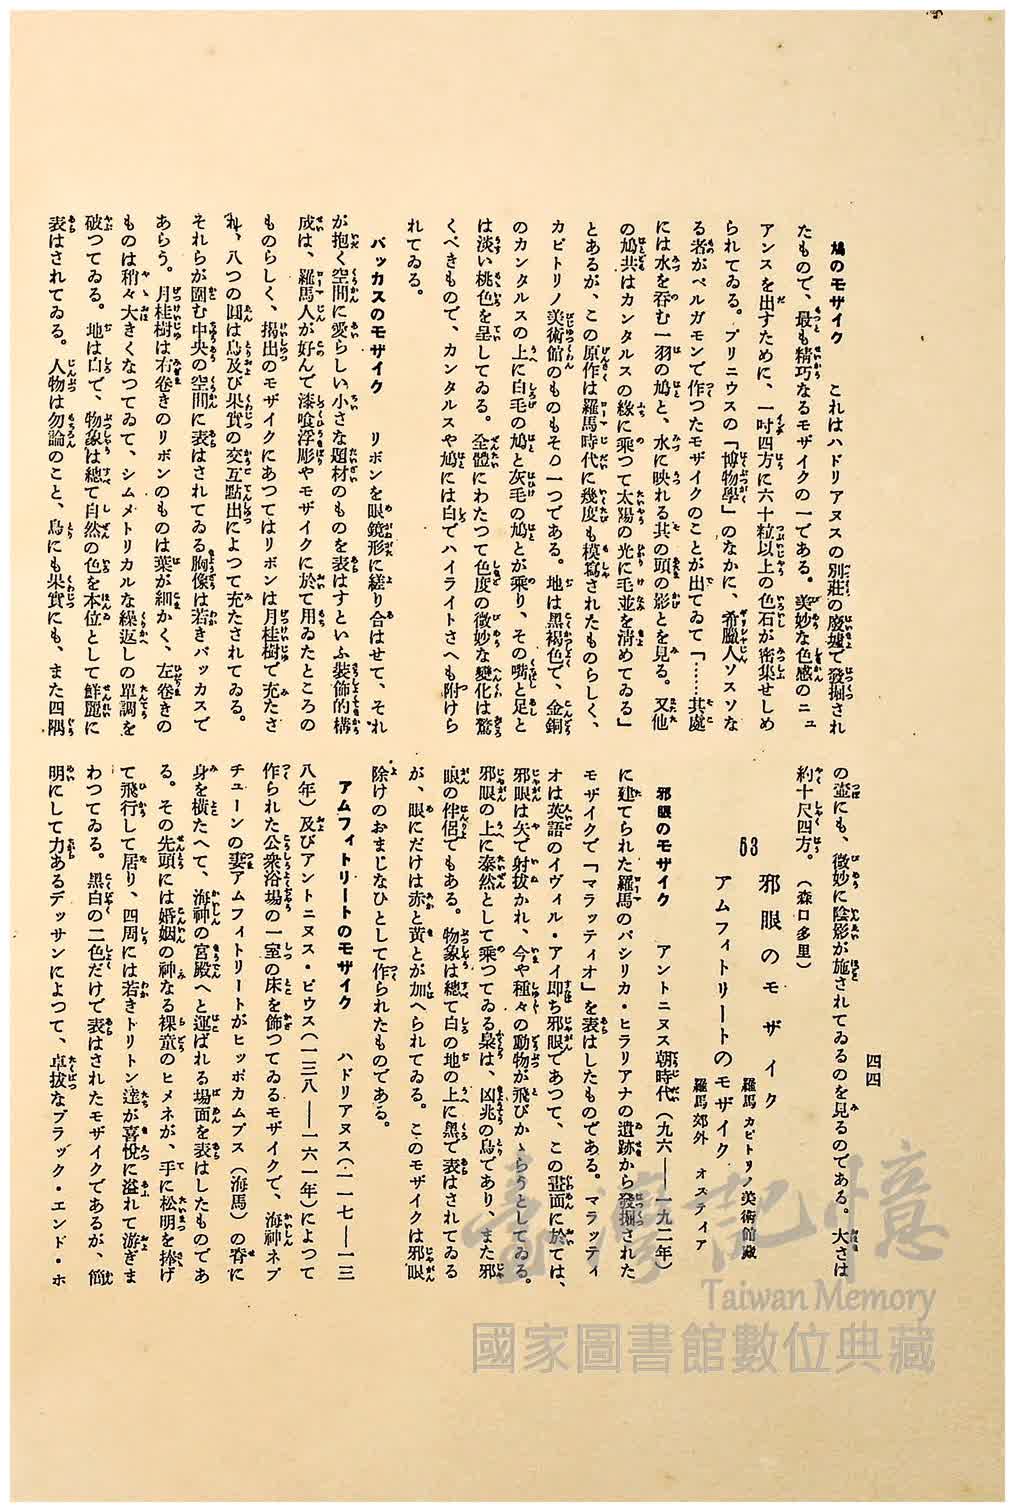 鳩のモザイク　これはハドリアヌスの別莊の廢墟で發掘され
たもので、最も精巧なるモザイクの一である。美妙な色感のニュ
アンスを出すために、一吋四方に六十粒以上の色石が密集せしめ
られてゐる。プリニウスの「博物學」のなかに、希臘人ソスソな
る者がペルガモンで作つたモザイクのことが出てゐて「……其處
には水を呑む一羽の鳩と、水に映れる其の頭の影とを見る。又他
の鳩共はカンタルスの緣に乘つて太陽の光に毛並を淸めてゐる」
とあるが、この原作は羅馬時代に幾度も模寫されたものらしく、
カピトリノ美術館のものもその一つである。地は黑褐色で、金銅
のカンタルスの上に白毛の鳩と灰毛の鳩とが乘り、その嘴と足と
は淡い桃色を呈してゐる。全體にわたつて色度の微妙な變化は驚
くべきもので、カンタルスや鳩には白でハイライトさへも附けら
れてゐる。
バッカスのモザイク　リボンを眼鏡形に縒り合はせて、それ
が抱く空間に愛らしい小さな題材のものを表はすといふ裝飾的構
成は、羅馬人が好んで漆喰浮彫やモザイクに於て用ゐたところの
ものらしく、揭出のモザイクにあつてはリボンは月桂樹で充たさ
れ、八つの圓は鳥及び果實の交互點出によつて充たされてゐる。
それらが圍む中央の空間に表はされてゐる胸像は若きバッカスで
あらう。月桂樹は右卷きのリボンのものは葉が細かく、左卷きの
ものは稍々大きくなつてゐて、シムメトリカルな繰返しの單調を
破つてゐる。地は白で、物象は總て自然の色を本位として鮮麗に
表はされてゐる。人物は勿論のこと、鳥にも果實にも、また四隅
の壺にも、微妙に陰影が施されてゐるのを見るのである。大さは
約十尺四方。（森口多里）
63　邪眼のモザイク　羅馬 カピトリノ美術館藏
アムフィトリートのモザイク　羅馬郊外 オスティア
邪眼のモザイク　アントニヌス朝時代（九六――一九二年）
に建てられた羅馬のバシリカ・ヒラリアナの遺跡から發掘された
モザイクで「マラッティオ」を表はしたものである。マラッティ
オは英語のイヴィル・アイ卽ち邪眼であつて、この畫面に於ては、
邪眼は矢で射拔かれ、今や種々の動物が飛びかゝらうとしてゐる。
邪眼の上に泰然として乘つてゐる梟は、凶兆の鳥であり、また邪
眼の伴侶でもある。物象は總て白の地の上に黑で表はされてゐる
が、眼にだけは赤と黃とが加へられてゐる。このモザイクは邪眼
除けのおまじなひとして作られたものである。
アムフィトリートのモザイク　ハドリアヌス（一一七――一三
八年）及びアントニヌス・ピウス（一三八――一六一年）によつて
作られた公衆浴場の一室の床を飾つてゐるモザイクで、海神ネプ
チューンの妻アムフィトリートがヒッポカムプス（海馬）の脊に
身を橫たへて、海神の宮殿へと運ばれる場面を表はしたものであ
る。その先頭には婚姻の神なる裸童のヒメネが、手に松明を捧げ
て飛行して居り、四周には若きトリトン達が喜悅に溢れて游ぎま
わつてゐる。黑白の二色だけで表はされたモザイクであるが、簡
明にして力あるデッサンによつて、卓拔なブラック・エンド・ホ
四四
臺灣記憶
Taiwan Memory
國家圖書館數位典藏